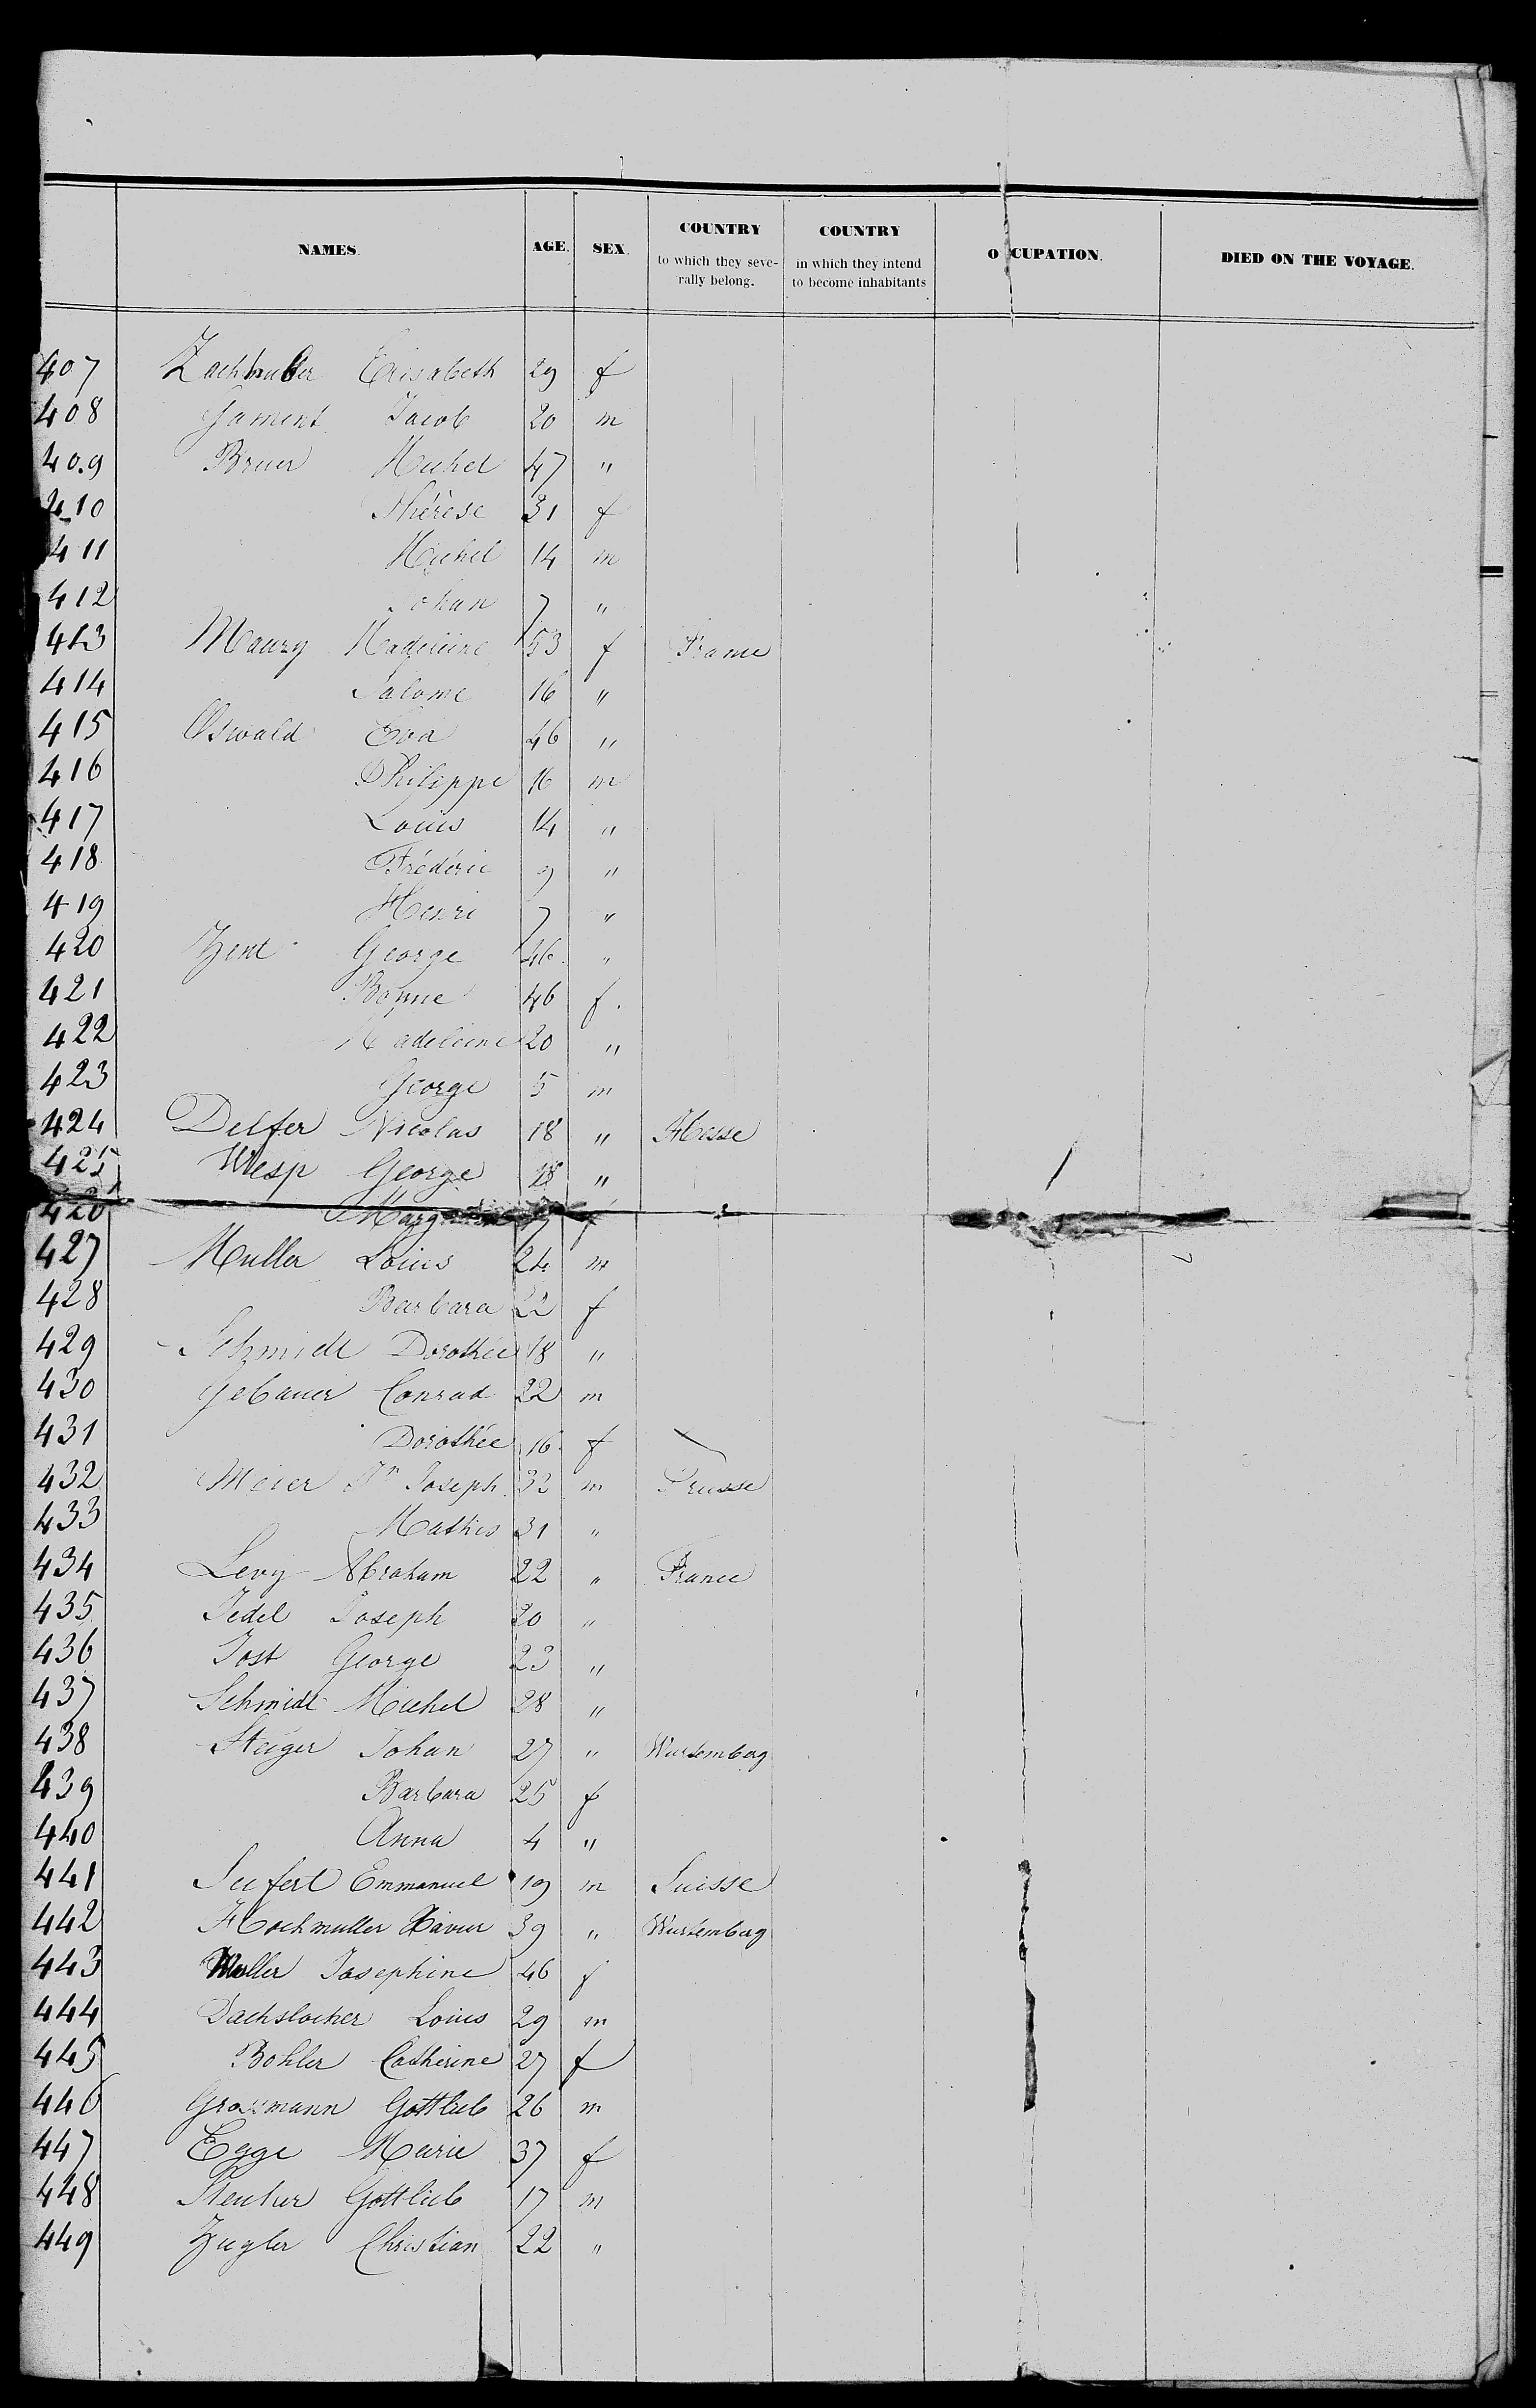 NAMES. AGE. SEX. COUNTRY to which they seve-rally belong. COUNTRY in which they intend to become inhabitants O CUPATION. DIED ON THE VOYAGE.
407 Elisabeth 29 f
408 Gament Jacob 20 m
409 Bruer Michel 47 "
410 Thérèse 31 f
411 Michel 14 m
412 Johan 7 "
413 Maury Madeleine 53 f France
414 Salome 16 "
415 Oswald Eva 46 "
416 Philippe 16 m
417 Louis 14 "
418 Frédéric 9 "
419 Henri 7 "
420 Zent George 46 "
421 46 f.
422 Madeleine 20 "
423 George 5 m
424 Delfer Nicolas 18 " Hesse
425 Wesp George 18 "
426
427 Muller Louis 24 m
428 Barbara 22 f
429 Schmidt Dorothée 18 "
430 Gebauer Conrad 22 m
431 Dorothée 16 f
432 Meier Jn Joseph 32 m Prusse
433 Mathis 31 "
434 Levy Abraham 22 " France
435 Jedel Joseph 20 "
436 Jost George 23 "
437 Schmidt Michel 28 "
438 Steiger Johan 27 " Wurtemberg
439 Barbara 25 f
440 Anna 4 "
441 Seifert Emmanuel 19 m Suisse
442 Hochmuller Xavier 39 " Wurtemberg
443 Josephine 46 f
444 Dachslocher Louis 29 m
445 Bohler Catherine 27 f
446 Grosmann Gottlieb 26 m
447 Egge Marie 37 f
448 Gottlieb 17 m
449 Ziegler Christian 22 "